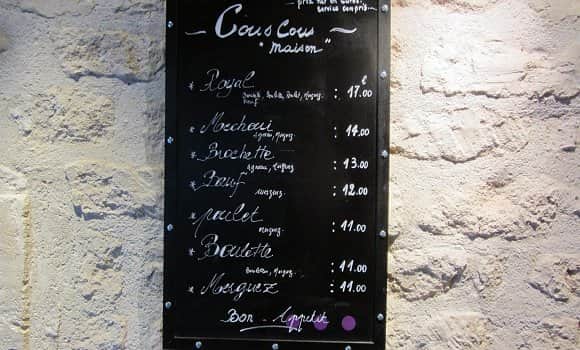 prix net en euros.
service compris.
Couscous
"maison"
€
* Royal : 17.00
Boulette, Poulet, Merguez.
Boeuf
* Mechoui : 14.00
Agneau, Merguez
* Brochette : 13.00
Agneau, Merguez
* Bœuf : 12.00
Merguez.
* poulet : 11.00
Merguez.
* Boulette : 11.00
Boulettes, Merguez.
* Merguez : 11.00
Bon - Appetit